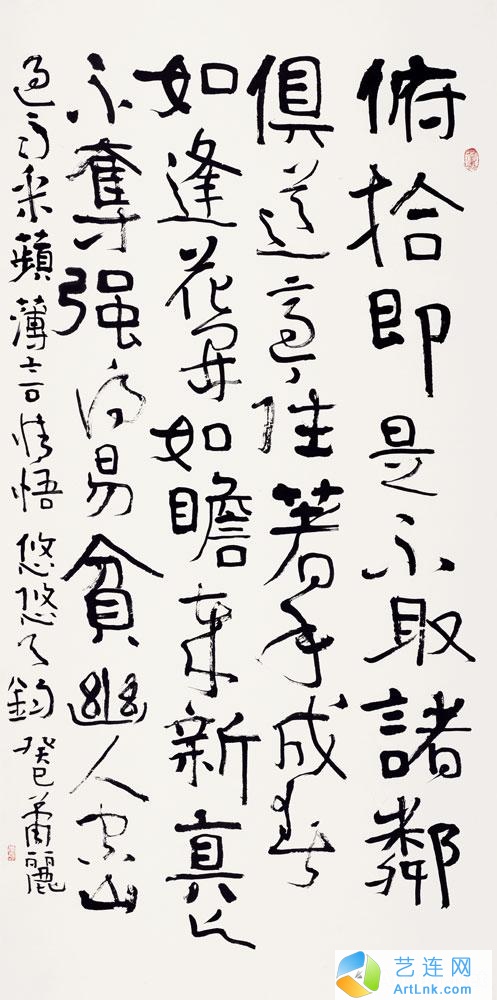 俯拾即是不取諸鄰
俱道適往著手成春
如逢花開如瞻歲新真与
不奪强得易貧幽人空山
過雨采蘋薄言情悟悠悠天鈞 癸巳蕭麗
艺连网
ArtLnk.com